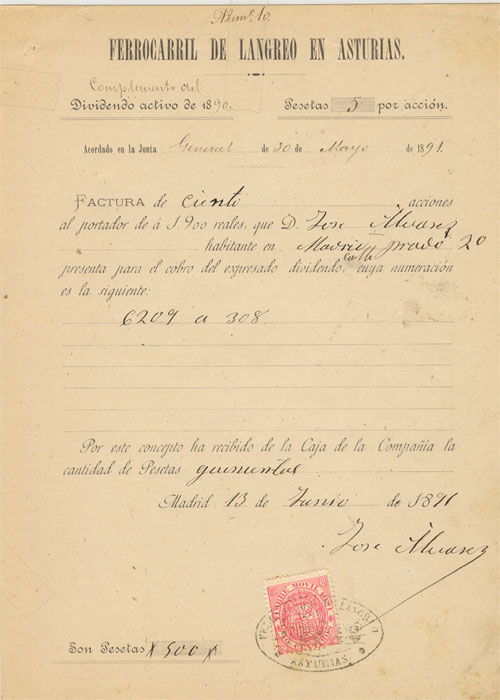 Núm.º 10.
FERROCARRIL DE LANGREO EN ASTURIAS.
Complemento del
Dividendo activo de 1890. Pesetas 5 por acción.
Acordado en la Junta General de 30 de Mayo de 1891.
FACTURA de ciento acciones
al portador de á 1.900 reales, que D. Jose Álvarez
habitante en Madrid prado 20
calle
presenta para el cobro del expresado dividendo, cuya numeración
es la siguiente:
6209 a 308
Por este concepto ha recibido de la Caja de la Compañía la
cantidad de Pesetas quinientas
Madrid 13 de Junio de 1891
Jose Álvarez
TIMBRE MOVIL 1891
LANGREO
ASTURIAS
Son Pesetas 500